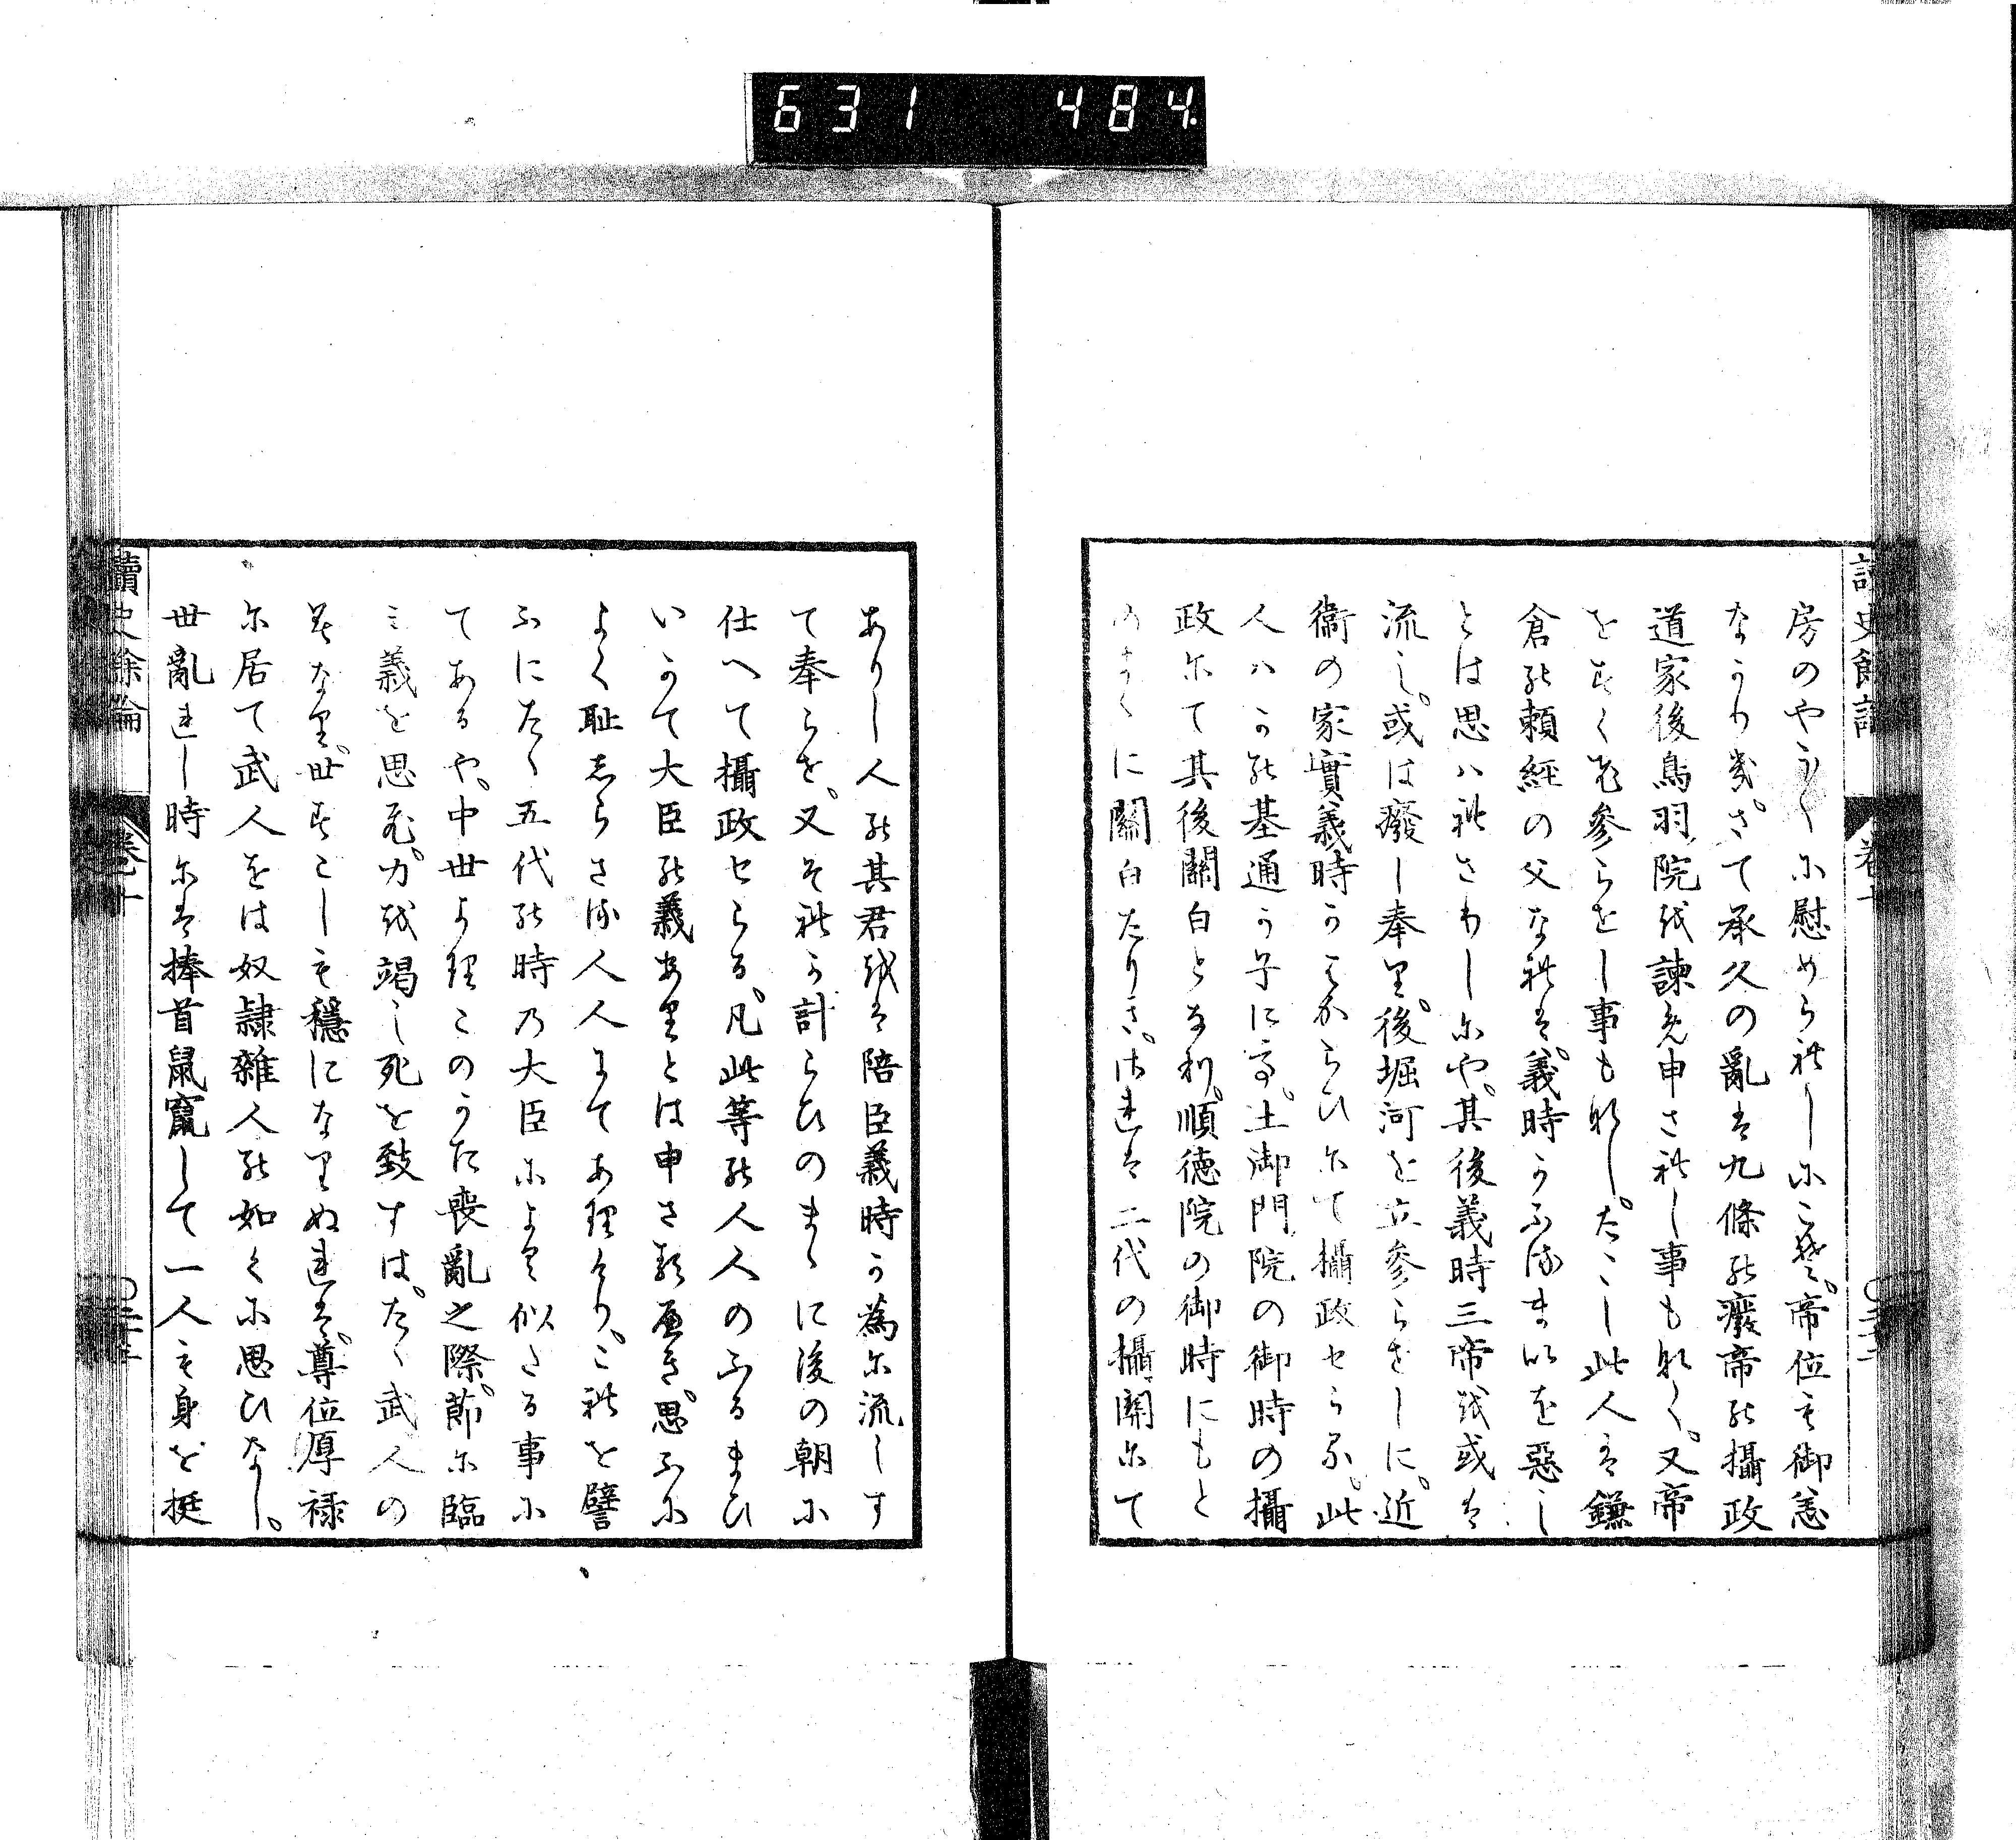 631 484
房のやうに慰められしにこそ。帝位も御恙
なかりき。さて承久の亂は九條の廢帝の攝政
道家後鳥羽院を諫め申されし事もなく。又帝
をたすく參らせし事もなし。たゝし此人は鎌
倉の頼經の父なれは。義時かふるまひを惡し
とは思ハれさりしにや。其後義時三帝を或は
流し。或は廢し奉り。後堀河を立參らせしに。近
衞の家實義時かはからひにて攝政せらる。此
人ハかの基通か子にて。土御門院の御時の攝
政にて其後關白となり。順徳院の御時にもと
のまゝに關白たりき。されは二代の攝關にて
ありし人の其君をは陪臣義時か為に流しす
て奉らせ。又それか計らひのまゝに後の朝に
仕へて攝政せらる。凡此等の人人のふるまひ
いかて大臣の義ありとは申さるへき。思ふに
よく耻しらさる人人にてありけり。これを譬
ふにたゝ五代の時の大臣によく似たる事に
てあるや。中世よりこのかた喪亂之際。節に臨
ミ義を思ひ。力を竭し死を致すは。たゝ武人の
みなり。世すこしも穩になりぬれは。尊位厚祿
に居て武人をは奴隷雜人の如くに思ひなし。
世亂れし時には捧首鼠竄して一人も身を挺
讀史餘論
卷十